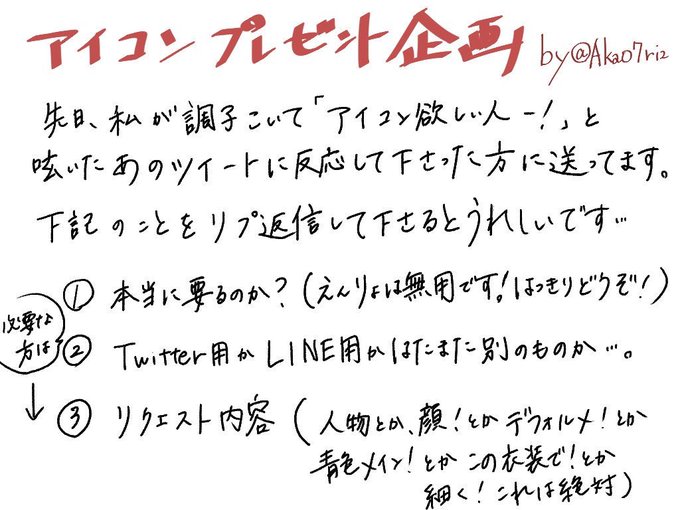 アイコンプレゼント企画 by@Akao7ri2
先日、私が調子こいて「アイコン欲しい人ー!」と
呟いたあのツイートに反応して下さった方に送ってます。
下記のことをリプ返信して下さるとうれしいです…
① 本当に要るのか?(えんりょは無用です!はっきりどうぞ!)
必要な
方は↓
② Twitter用かLINE用かはたまた別のものか…。
③ リクエスト内容(人物とか、顔!とかデフォルメ!とか
青色メイン!とかこの衣装で!とか
細く!これは絶対)